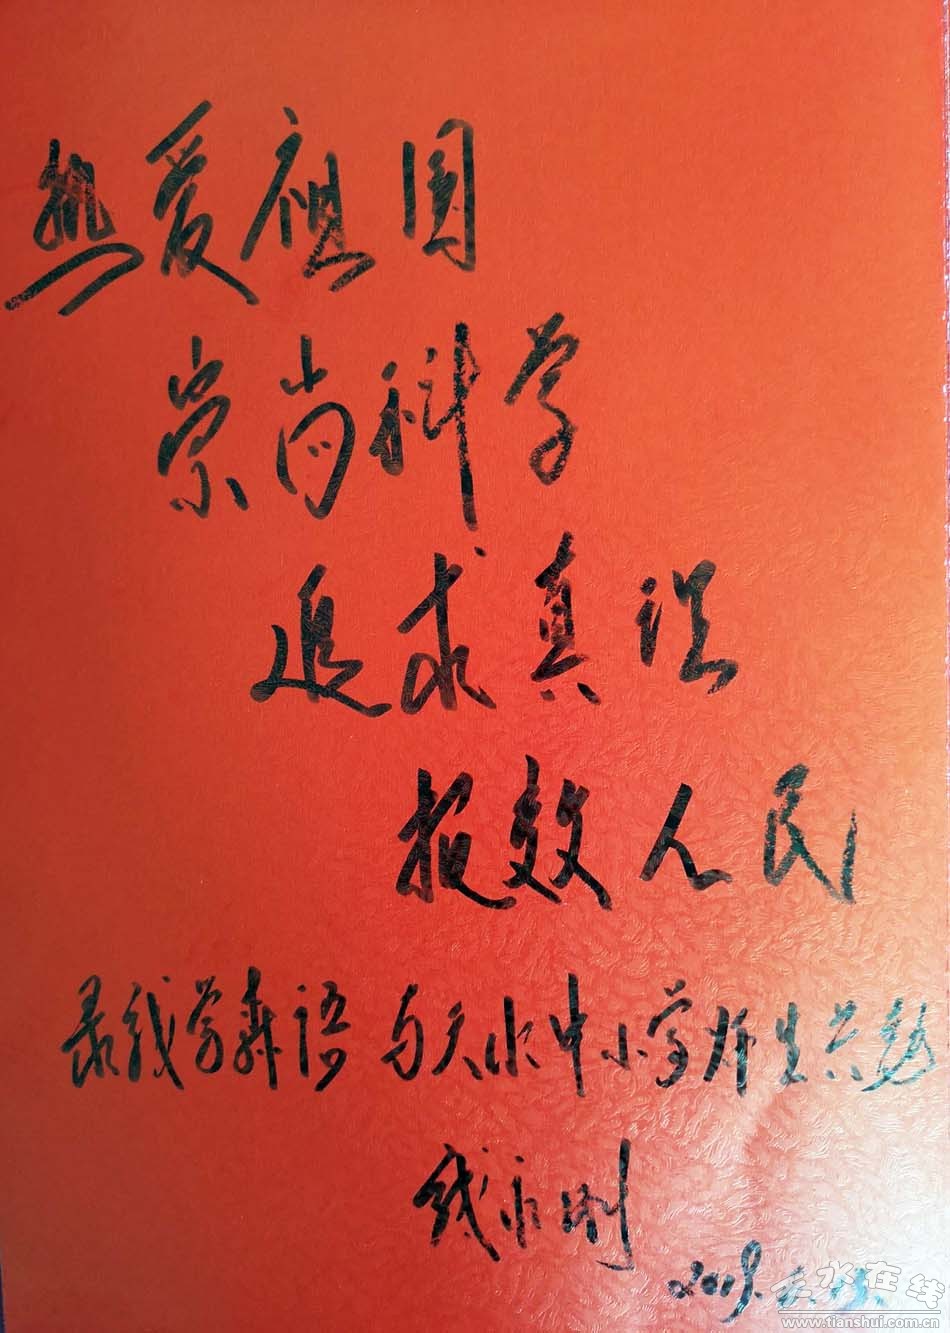 热爱祖国
崇尚科学
追求真理
报效人民
录钱学森语 与天水中小学师生共勉
钱永刚
2019.
天水在线
www.tianshui.com.cn